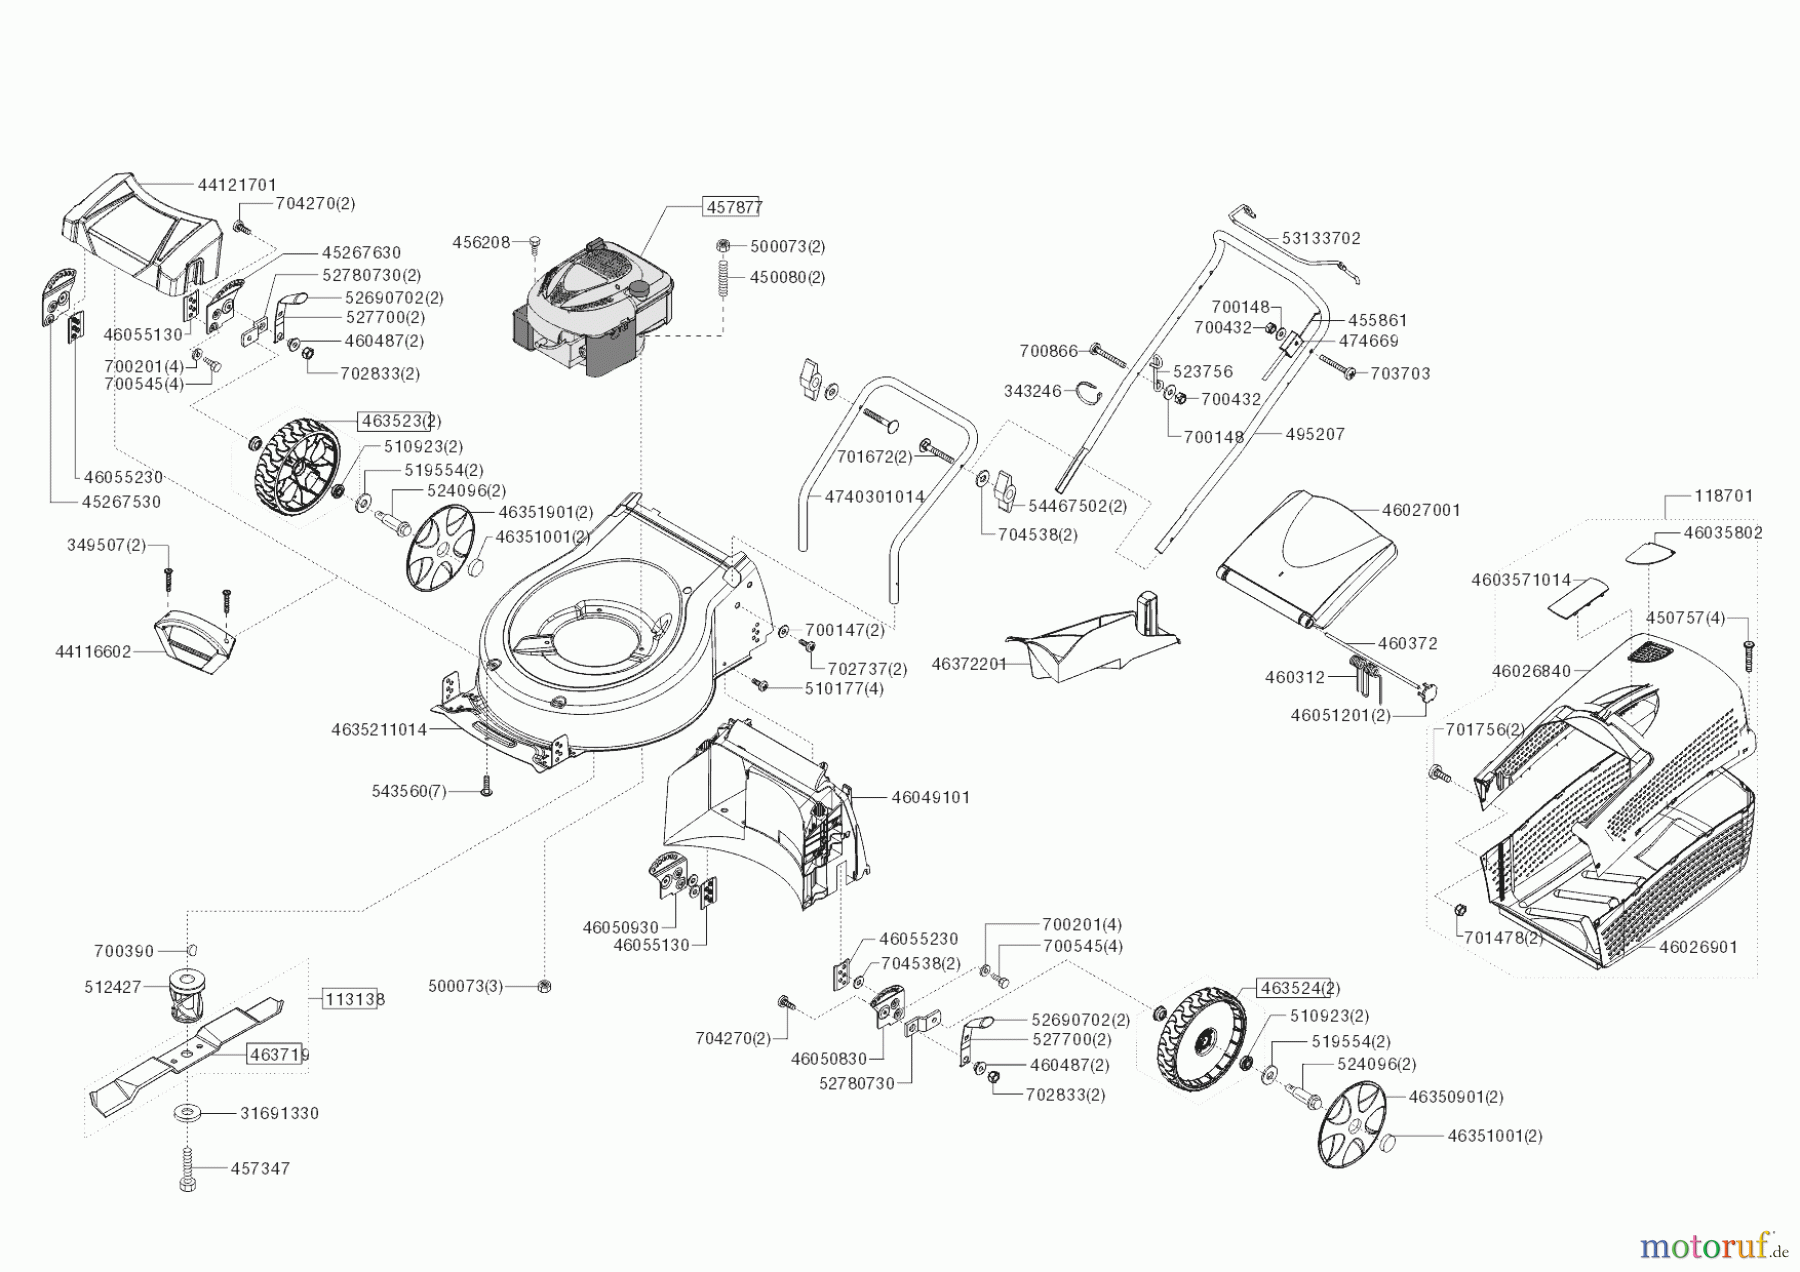 44121701
704270(2)
457877
45267630
456208
500073(2)
53133702
52780730(2)
450080(2)
52690702(2)
700148
527700(2)
455861
46055130
700432
460487(2)
474669
700866
700201(4)
523756
702833(2)
703703
700545(4)
343246
700432
463523(2)
700148
495207
510923(2)
701672(2)
519554(2)
46055230
524096(2)
4740301014
118701
45267530
46351901(2)
54467502(2)
46027001
46351001(2)
704538(2)
46035802
349507(2)
4603571014
450757(4)
700147(2)
44116602
460372
46372201
702737(2)
46026840
510177(4)
460312
46051201(2)
4635211014
701756(2)
543560(7)
46049101
46050930
700201(4)
46055130
46055230
700545(4)
701478(2)
46026901
700390
704538(2)
512427
500073(3)
463524(2)
113138
52690702(2)
510923(2)
704270(2)
527700(2)
519554(2)
463719
46050830
460487(2)
524096(2)
52780730
702833(2)
46350901(2)
31691330
46351001(2)
457347
motoruf.de